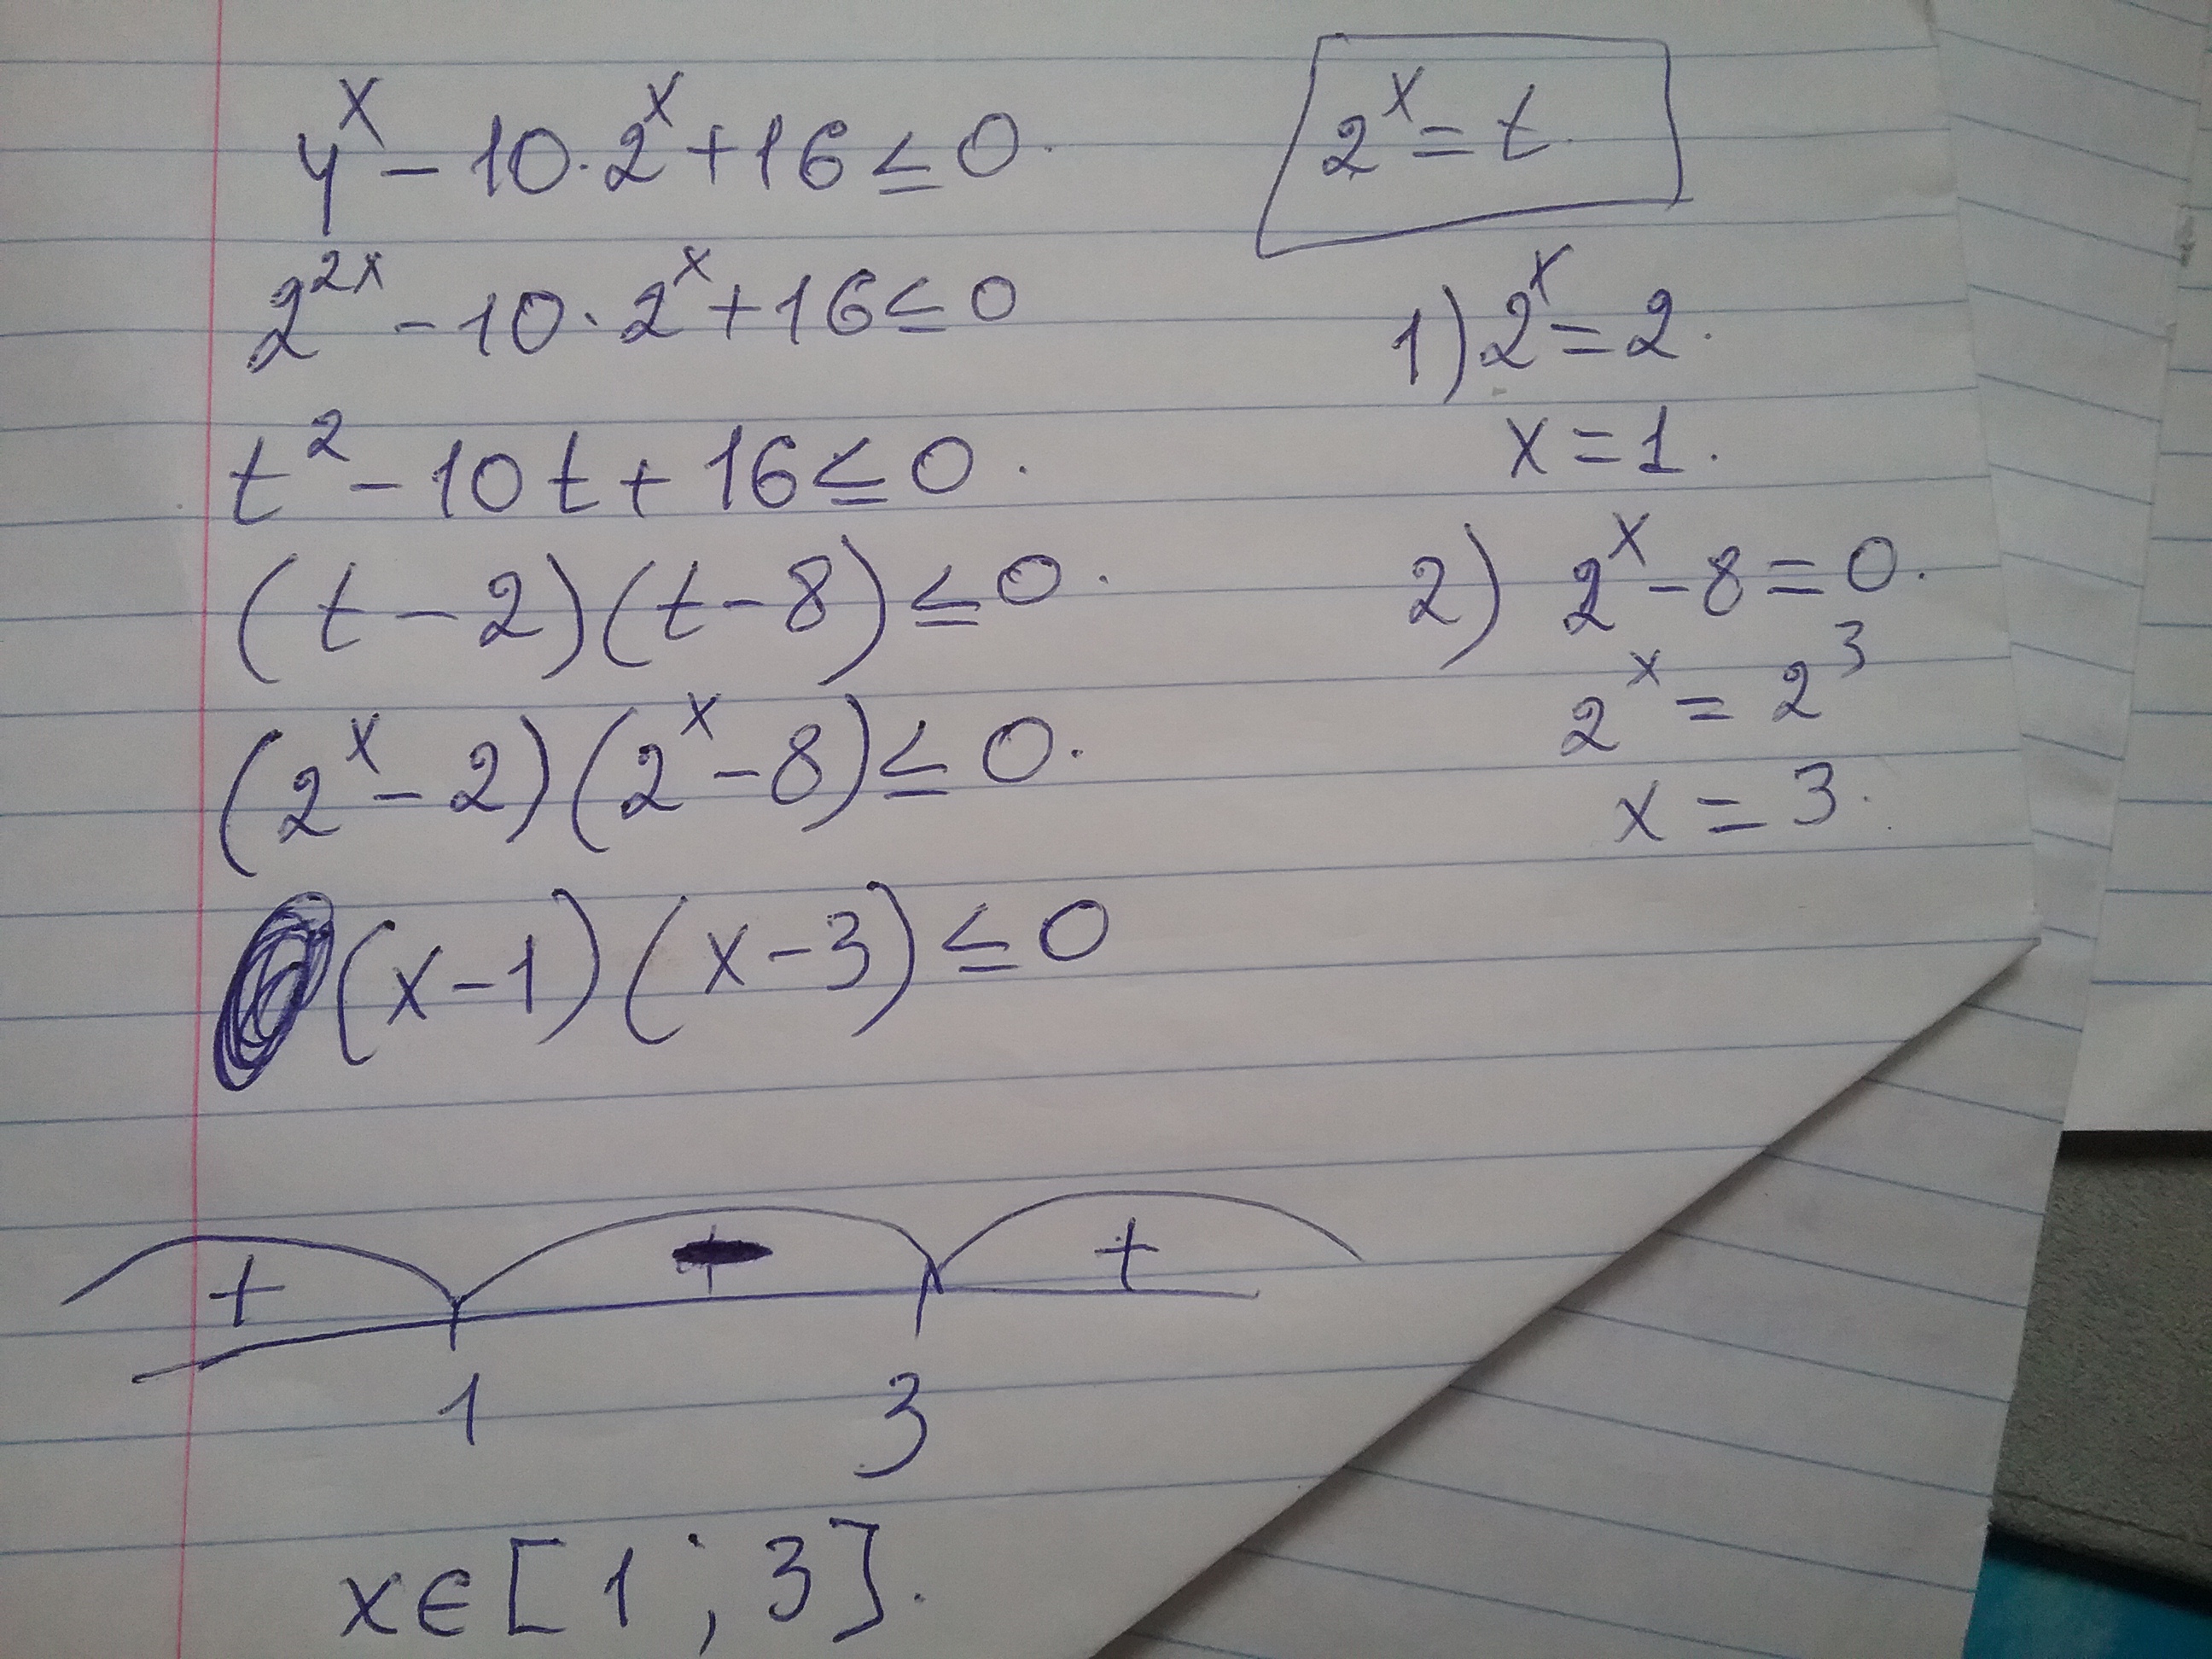 4ˣ - 10·2ˣ + 16 ≤ 0.
2²ˣ - 10·2ˣ + 16 ≤ 0
t² - 10t + 16 ≤ 0.
(t - 2)(t - 8) ≤ 0.
(2ˣ - 2)(2ˣ - 8) ≤ 0.
(x - 1)(x - 3) ≤ 0
2ˣ = t.
1) 2ˣ = 2.
x = 1.
2) 2ˣ - 8 = 0.
2ˣ = 2³
x = 3.
+ - +
1 3
x ∈ [1 ; 3].